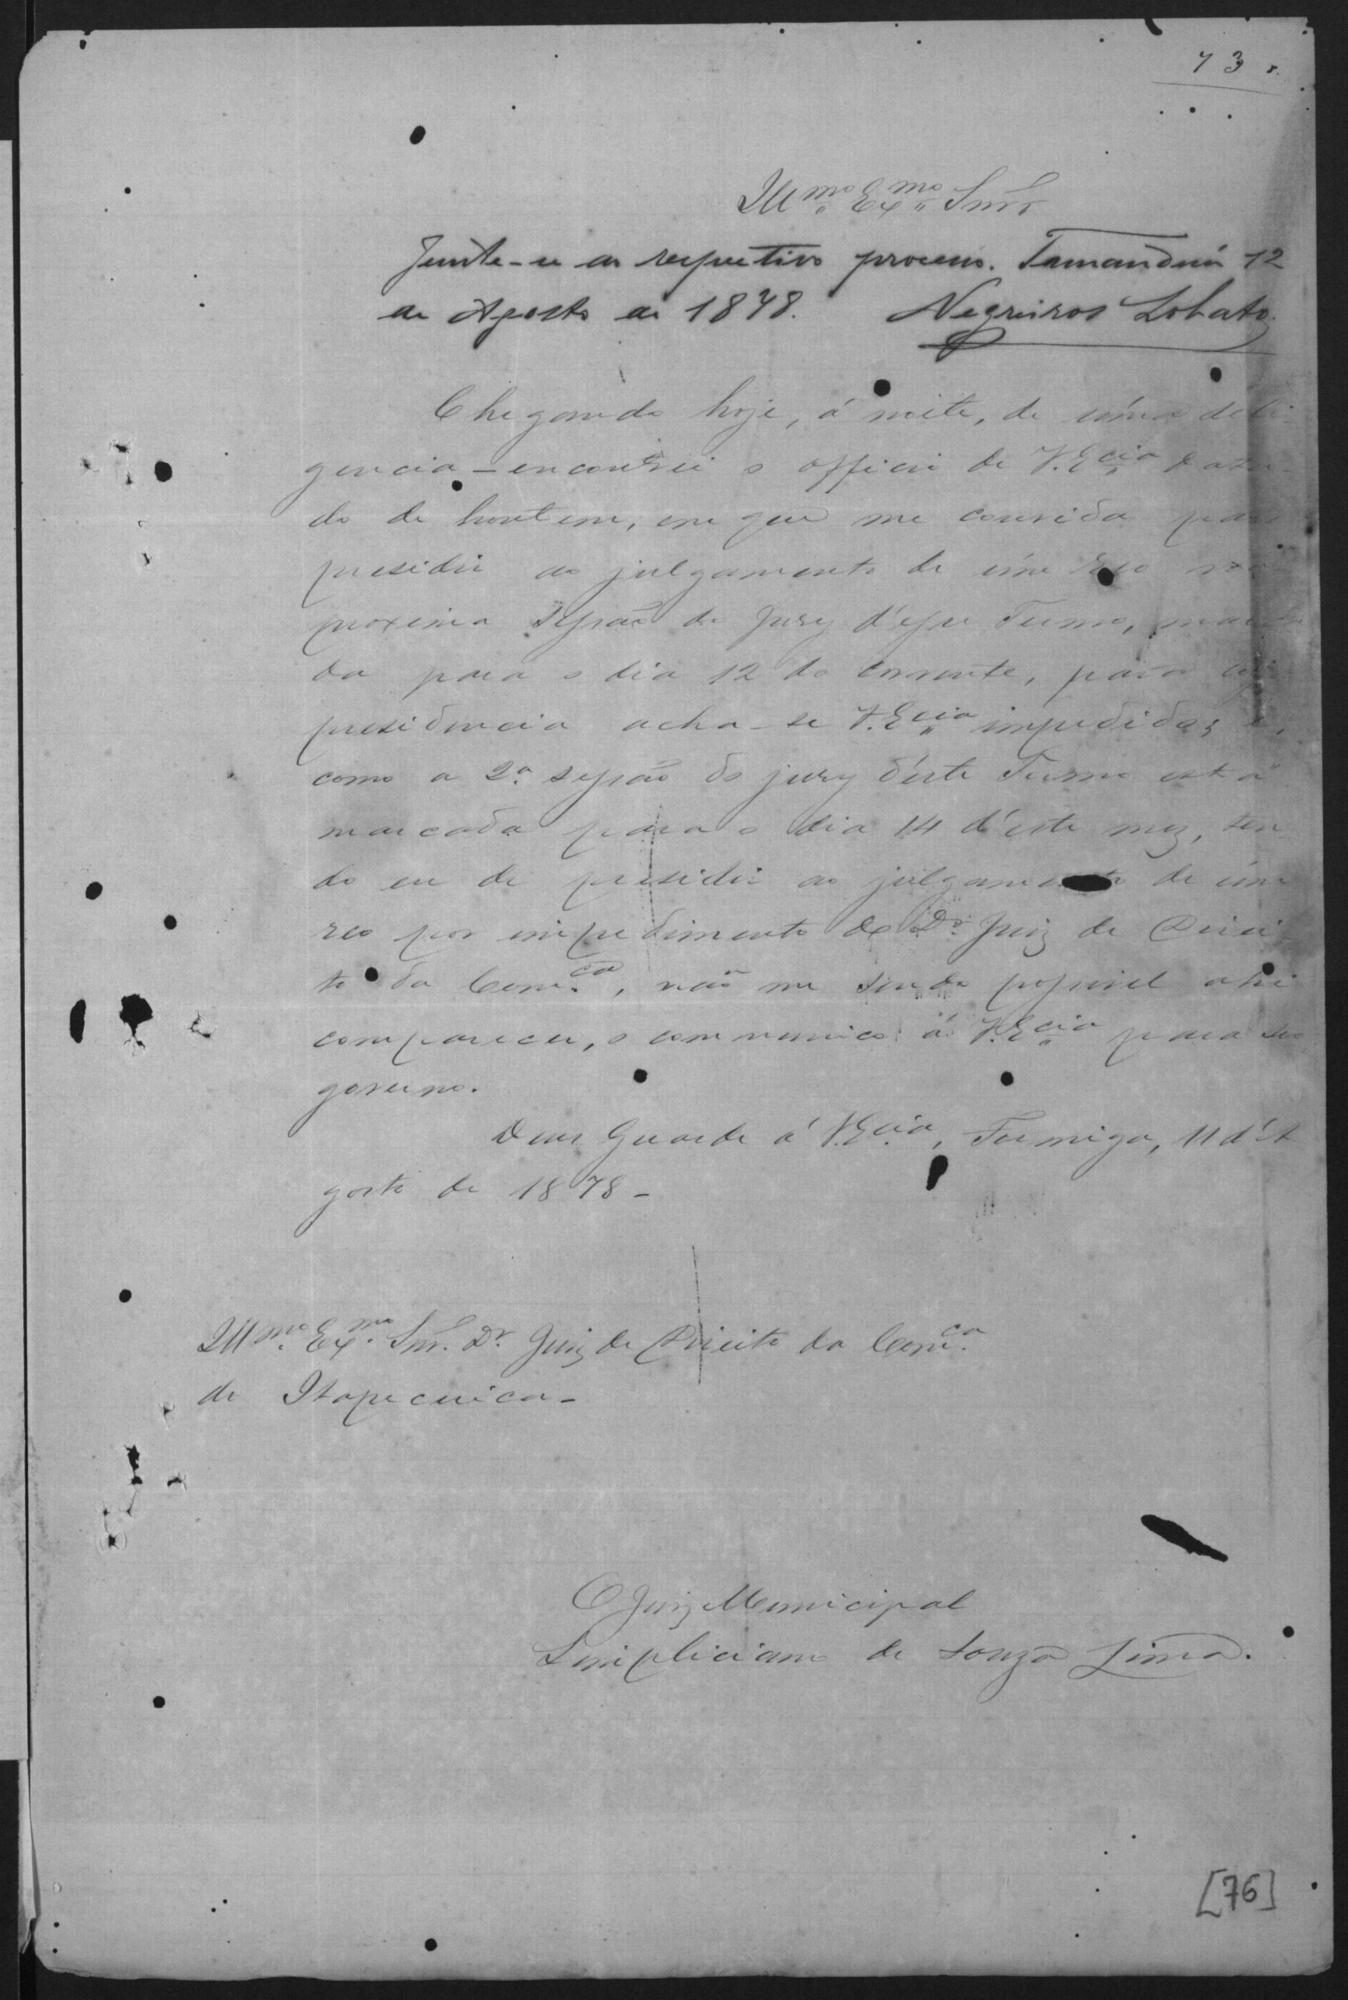 73
Illmo. Exmo. Snr.
Junte-se ao respectivo processo. Tamanduá 12
de Agosto de 1878. Negreiros Lobato.
Chegando hoje, á noite, de uma deli-
gencia - encontrei o officio de V. Ecia. data-
do de hontem, em que me convida para
presidir ao julgamento de um reo na
proxima Sessão do Jury d'esse Termo, marca-
da para o dia 12 do corrente, para cuja
presidencia acha-se V. Ecia. impedida; e,
como a 2a. sessão do jury d'este Termo está
marcada para o dia 14 d'este mez, ten-
do eu de presidir ao julgamento de um
reo por impedimento do Dr. Juiz de Direi-
to da Comca., não me sendo possivel ahi
comparecer, o communico á V. Ecia. para seu
governo.
Deus Guarde á V. Ecia., Formiga, 11 d'A-
gosto de 1878-
Illmo. Exmo. Snr. Dr. Juiz de Direito da Comca.
de Itapecirica-
O Juiz Municipal
Simpliciano de Souza Lima.
[76]